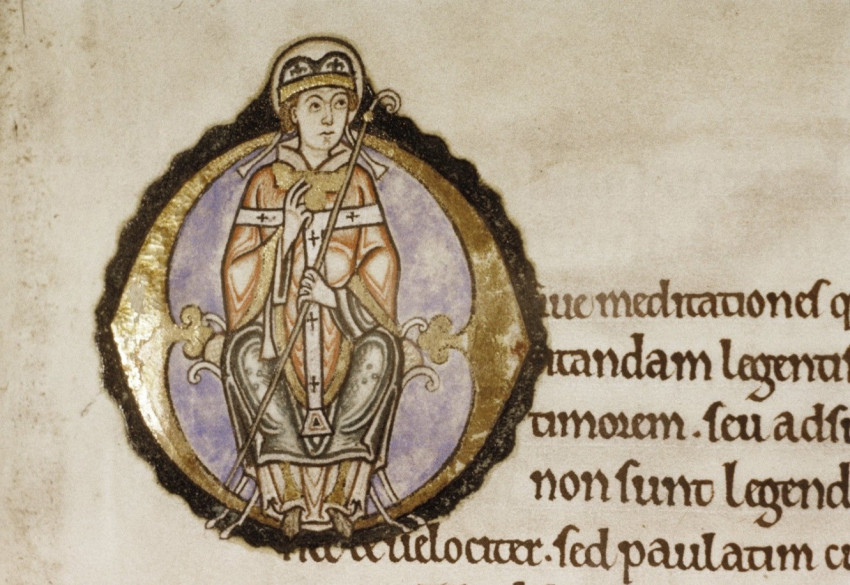 ue meditationes q
itandam legenti
timorem . seu ads
non sunt legend
uelociter . sed paulatim c